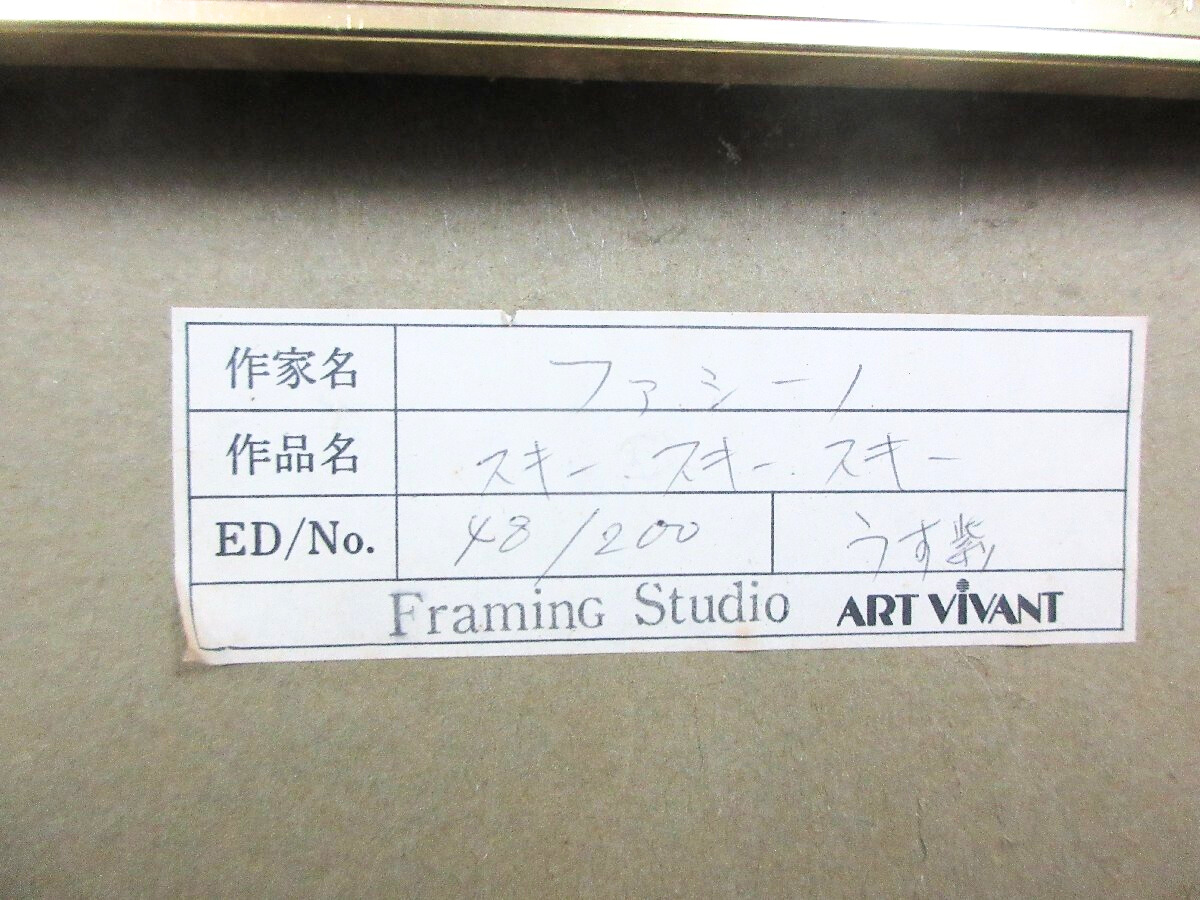 作家名 ファシーノ
作品名 スキー．スキー．スキー
ED/No. 48/200 うす紫
Framing Studio ART ViVANT